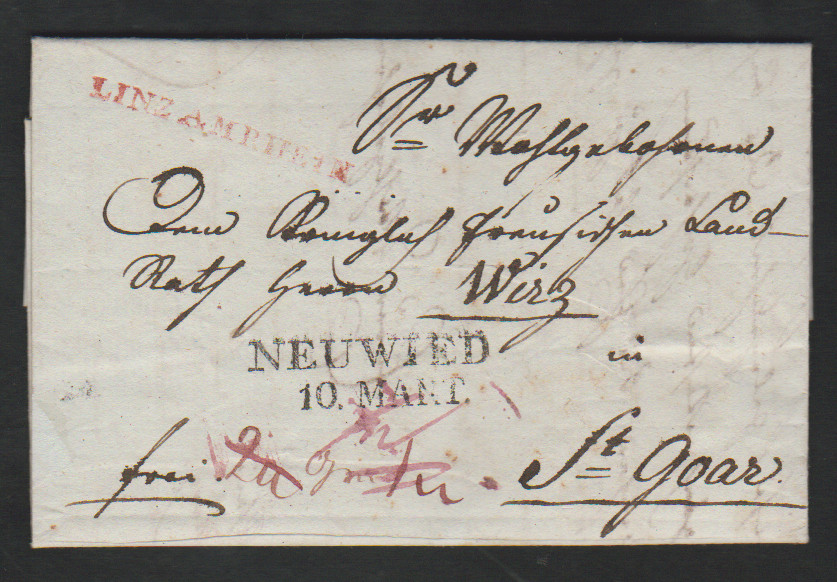 LINZ AM RHEIN
Sr Wohlgebohrnen
Dem Königlich Preusischen Land-
Rath Herrn Wirz
NEUWIED
10. MAERT.
in
frei.
St Goar.